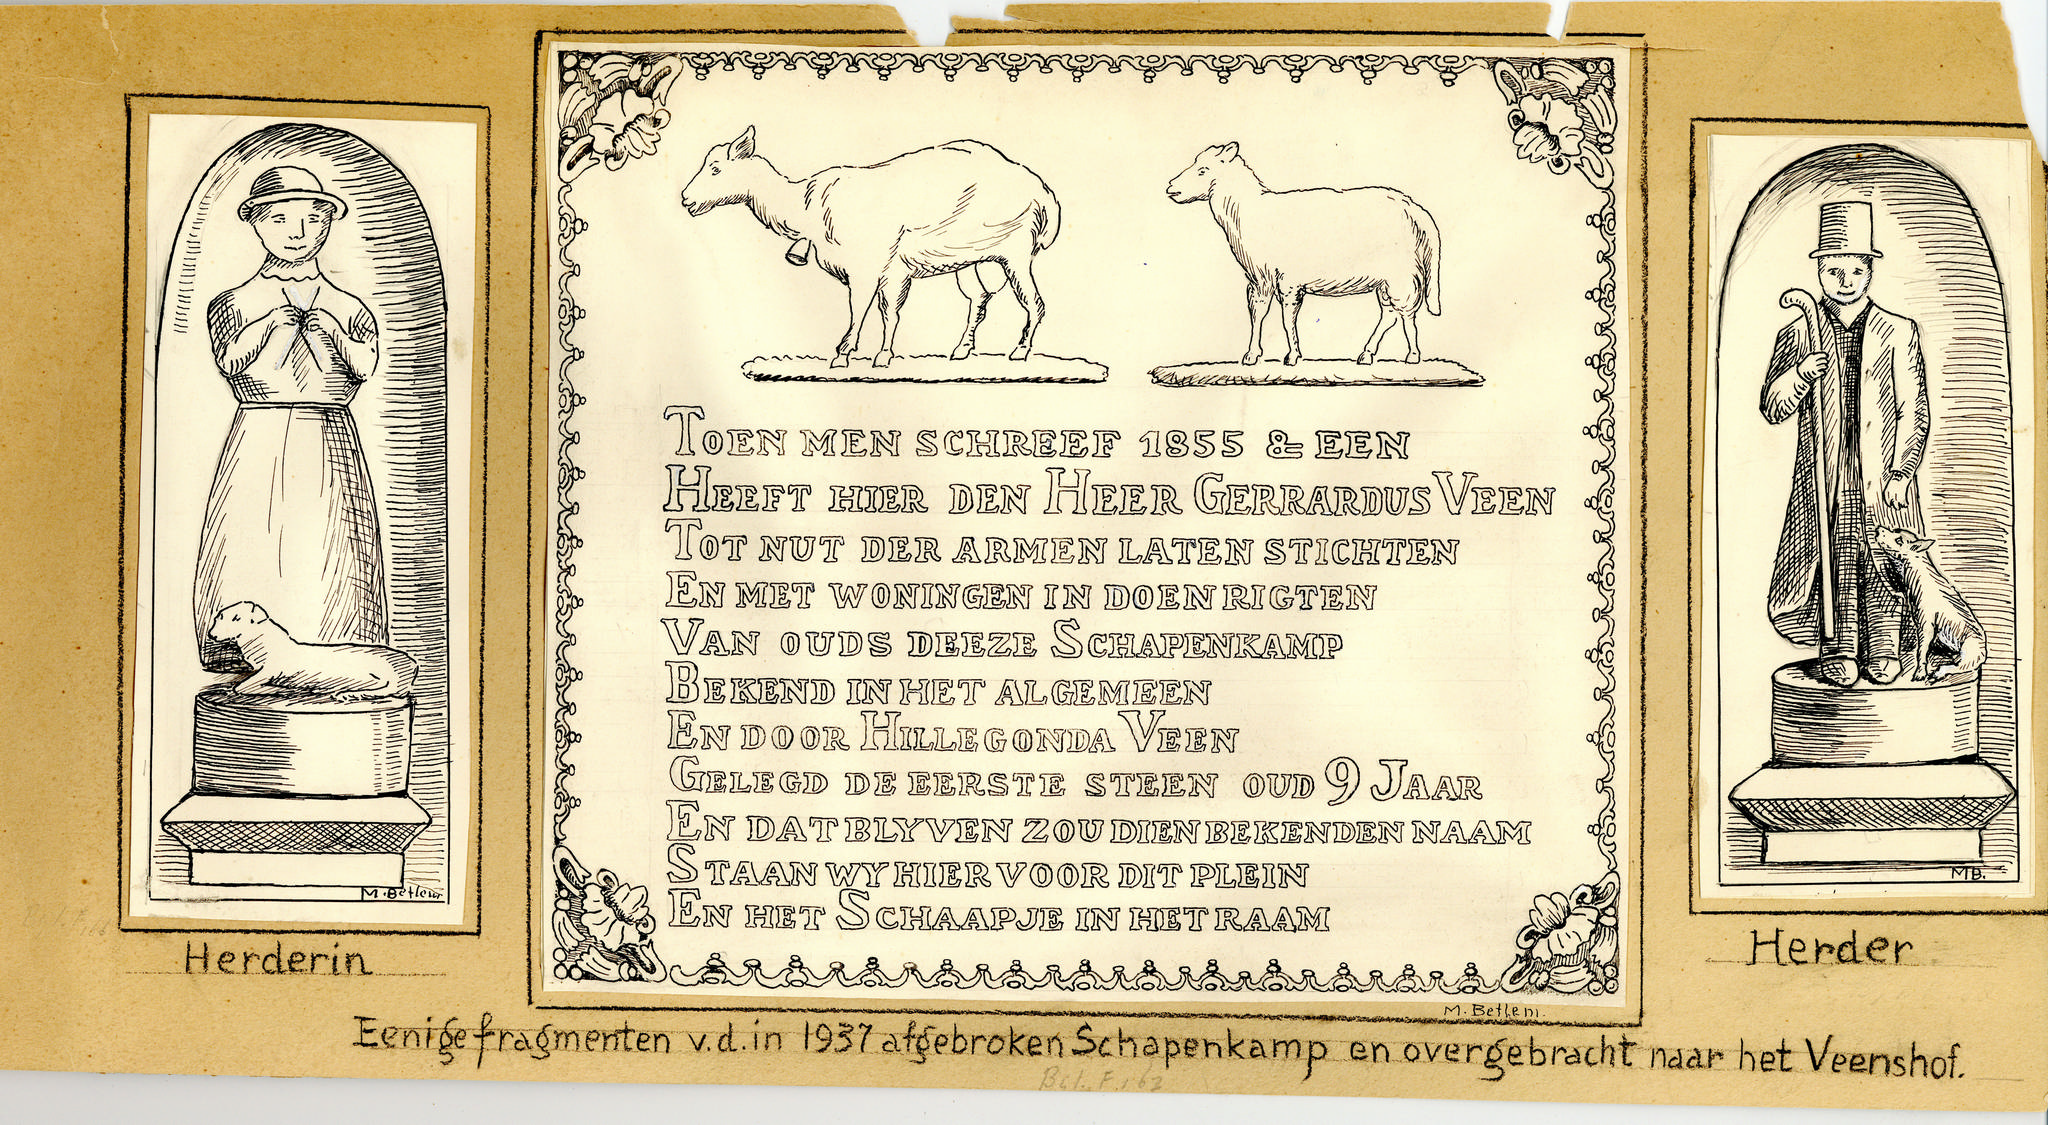 TOEN MEN SCHREEF 1855 & EEN
HEEFT HIER DEN HEER GERRARDUS VEEN
TOT NUT DER ARMEN LATEN STICHTEN
EN MET WONINGEN IN DOEN RIGTEN
VAN OUDS DEEZE SCHAPENKAMP
BEKEND IN HET ALGEMEEN
EN DOOR HILLEGONDA VEEN
GELEGD DE EERSTE STEEN OUD 9 JAAR
EN DAT BLYVEN ZOU DIEN BEKENDEN NAAM
STAAN WY HIER VOOR DIT PLEIN
EN HET SCHAAPJE IN HET RAAM
M. Betlem
M. Betlem.
MB.
Herderin
Herder
Eenige fragmenten v.d. in 1937 afgebroken Schapenkamp en overgebracht naar het Veenshof.